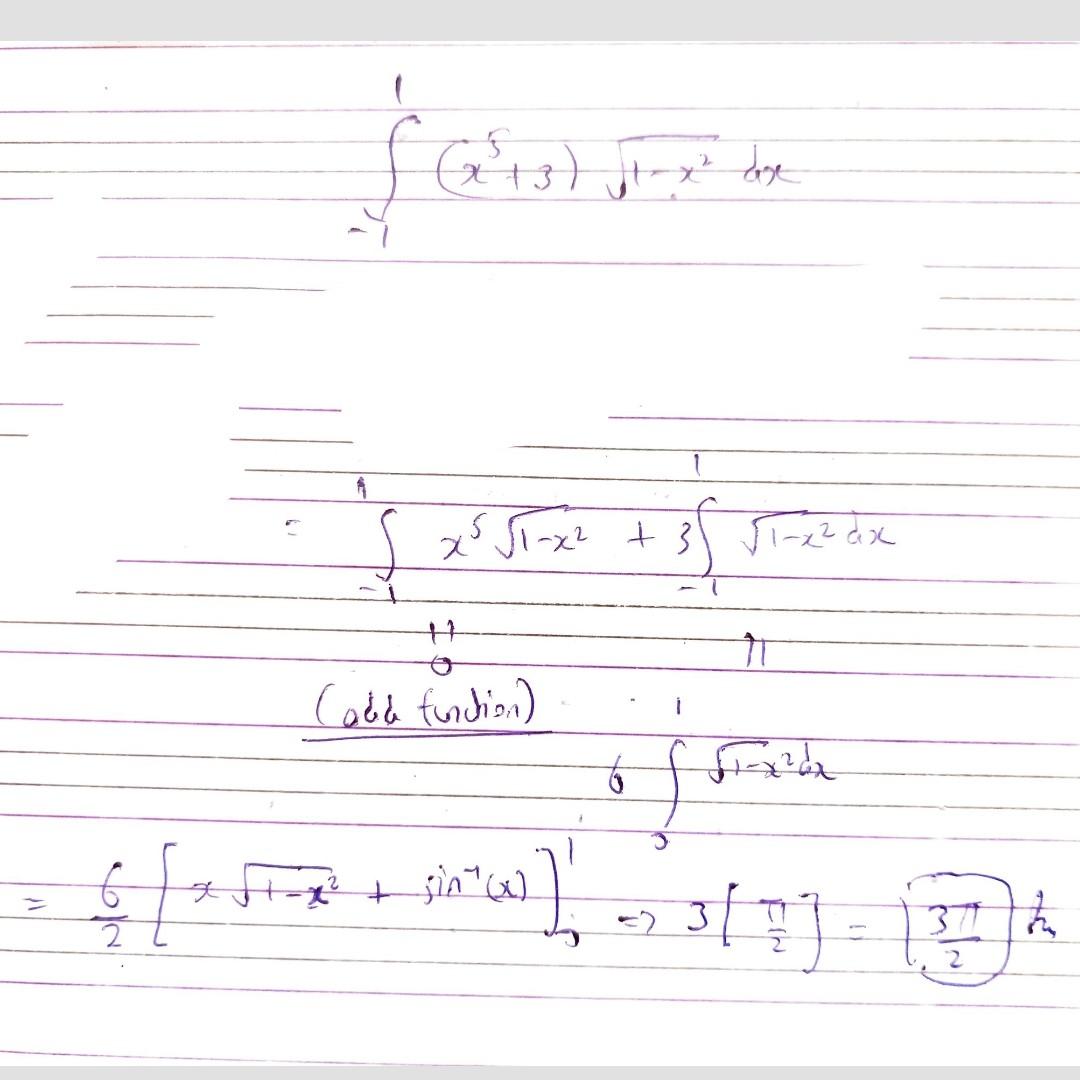 ∫₋₁¹ (x⁵+3) √(1-x²) dx
= ∫₋₁¹ x⁵ √(1-x²) + 3∫₋₁¹ √(1-x²) dx
|| ||
0
(odd function)
6 ∫₀¹ √(1-x²) dx
= 6/2 [x √(1-x²) + sin⁻¹(x)]₀¹ => 3[π/2] = 3π/2